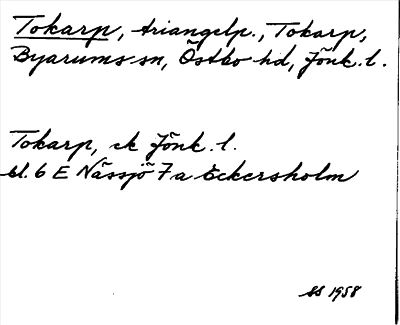 Tokarp, triangelp., Tokarp,
Byarums sn, Östbo hd, Jönk. l.
Tokarp, ek Jönk. l.
bl. 6 E Nässjö 7 a Eckersholm
SS 1958